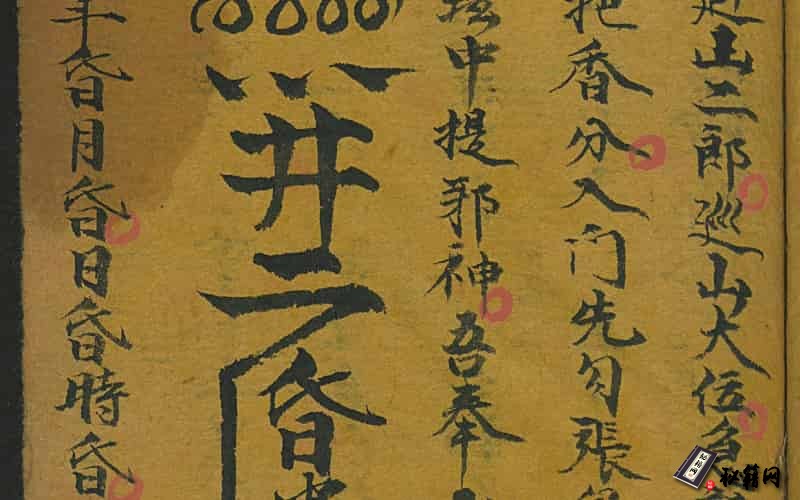 山二郎巡山大伍
把香分入门先勾張
坛中提邪神吾奉
井二昏
年昏月昏日昏時昏
秘籍网